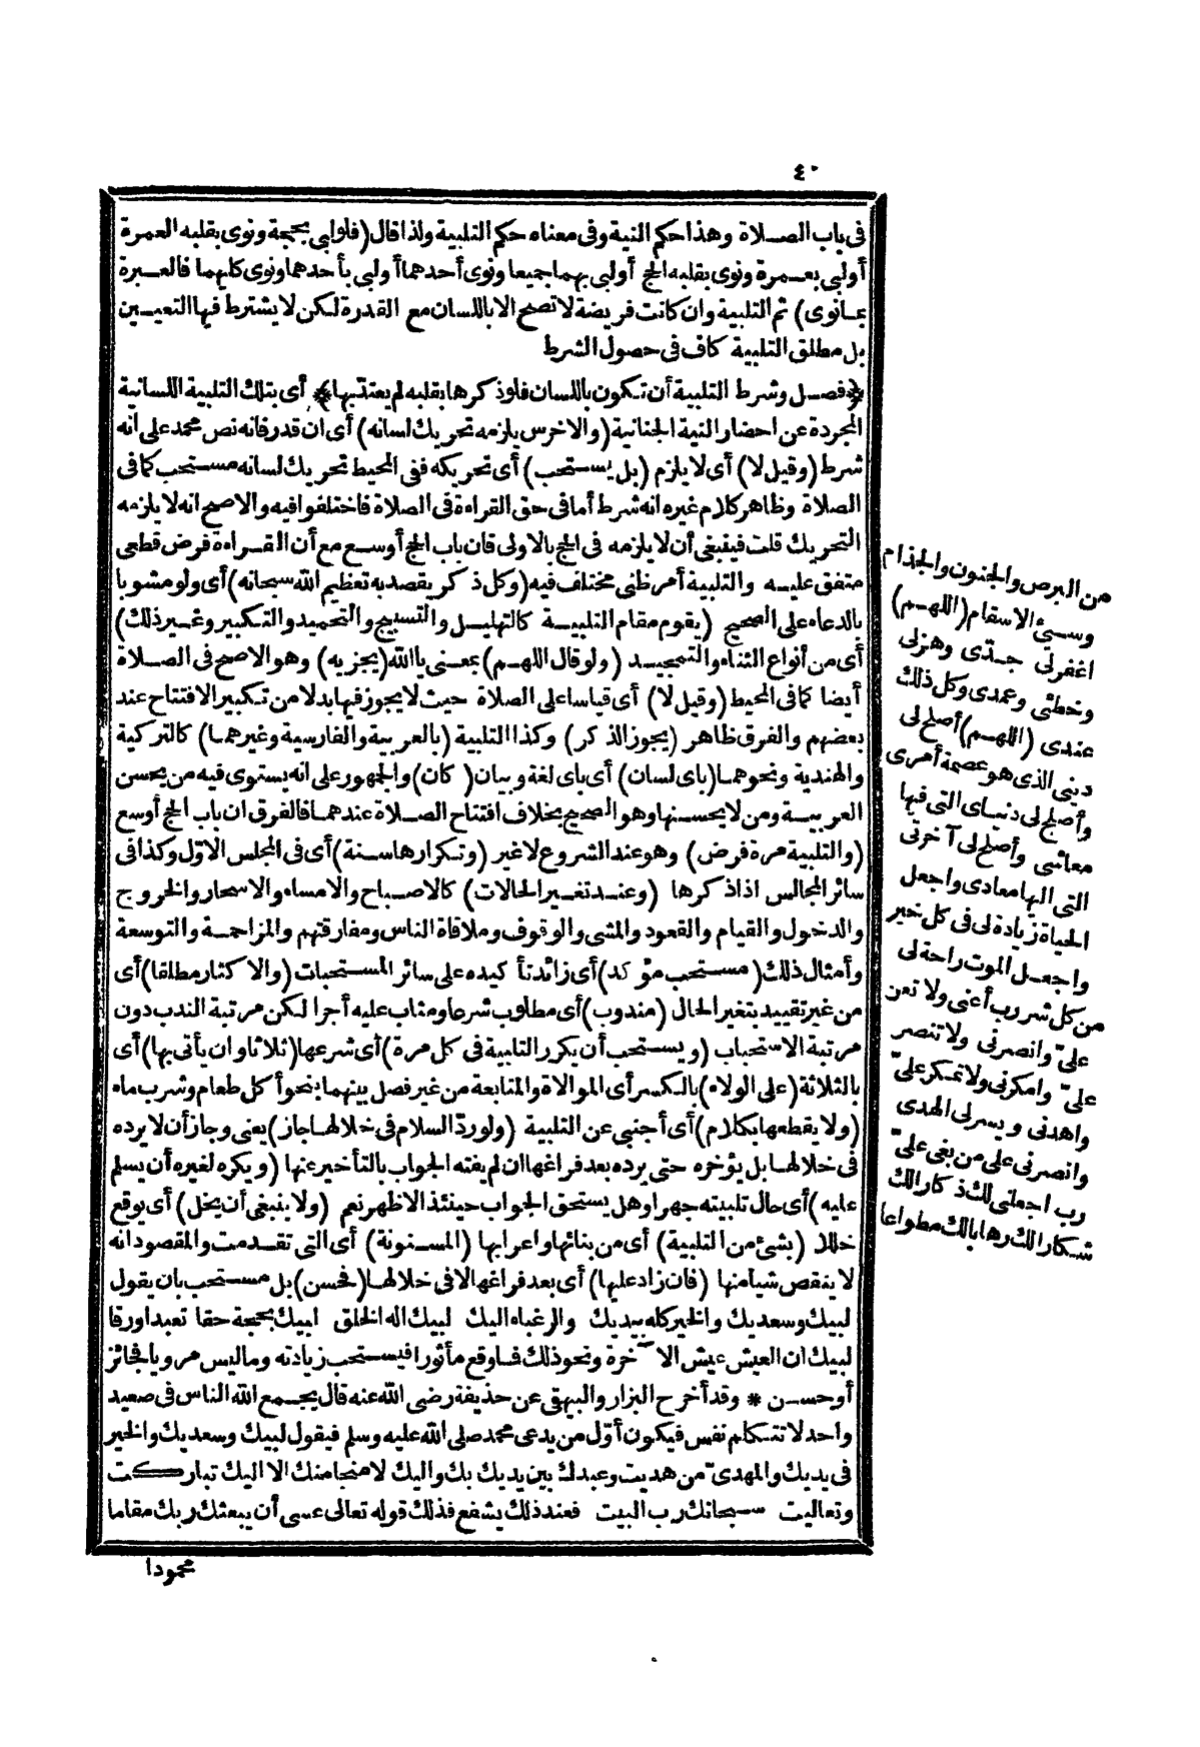 ٤٠
فى باب الصـلاة وهذا حكم النية وفى معناه حكم التلبية ولذا قال (فلولبى بحجة ونوى بقلبه العمرة
أولبى بعـمرة ونوى بقلبه الحج أولبى بهما جميعا ونوى أحدهما أولبى بأحدهما ونوى كليهما فالعـبرة
بمـانوى) ثم التلبية وان كانت فريضة لا تصح الا باللسان مع القدرة لـكن لا يشترط فيها التعيـين
بل مطلق التلبية كاف فى حصول الشرط
﴿فصـل وشرط التلبية أن تـكون باللسان فلوذكرها بقلبه لم يعتدّ بها﴾ أى بتلك التلبية اللسانية
المجردة عن احضار النية الجنانية (والاخرس يلزمه تحريك لسانه) أى ان قدر فانه نص محمد على انه
شرط (وقيل لا) أى لا يلزم (بل يسـتحب) أى تحريكه ففى المحيط تحريك لسانه مسـتحب كما فى
الصلاة وظاهر كلام غيره انه شرط أما فى حق القراءة فى الصلاة فاختلفوا فيه والاصح انه لا يلزمه
التحريك قلت فينبغى أن لا يلزمه فى الحج بالاولى فان باب الحج أوسـع مع أن القـراءة فرض قطعى
متفق عليـه والتلبية أمر ظنى مختلف فيه (وكل ذكر يقصد به تعظيم الله سبحانه) أى ولو مشوبا
بالدعاء على الصحيح (يقوم مقام التلبيـة كالتهليـل والتسبيح والتحميد والتـكبير وغـير ذلك)
أى من أنواع الثناء والتمجيـد (ولو قال اللهـم) بمعنى يا الله (يجزيه) وهو الاصح فى الصـلاة
أيضا كما فى المحيط (وقيل لا) أى قياسا على الصلاة حيث لا يجوز فيها بدلا من تـكبير الافتتاح عند
بعضهم والفرق ظاهر (يجوز الذكر) وكذا التلبية (بالعربية والفارسية وغيرهمـا) كالتركية
والهندية ونحوهمـا (باى لسان) أى باى لغة وبيان (كان) والجمهور على انه يستوى فيه من يحسن
العربيـة ومن لا يحسـنها وهو الصحيح بخلاف افتتاح الصـلاة عندهمـا فالفرق ان باب الحج أوسع
(والتلبية مرة فرض) وهو عند الشروع لا غير (وتـكرارها سـنة) أى فى المجلس الاوّل وكذا فى
سائر المجالس اذا ذكرها (وعنـد تغـير الحالات) كالاصباح والامساء والاسحار والخروج
والدخول والقيام والقعود والمشى والوقوف وملاقاة الناس ومفارقتهم والمزاحمـة والتوسعة
وأمثال ذلك (مسـتحب مؤكد) أى زائد تأكيده على سائر المسـتحبات (والاكثار مطلقا) أى
من غير تقييد بتغير الحال (مندوب) أى مطلوب شرعا ومثاب عليه أجرا لـكن مرتبة الندب دون
مرتبة الاسـتحباب (ويسـتحب أن يكرر التلبية فى كل مرة) أى شرعها (ثلاثا وان يأتى بها) أى
بالثلاثة (على الولاء) بالكسر أى الموالاة والمتابعة من غير فصل بينهما بنحو أكل طعام وشرب ماء
(ولا يقطعها بكلام) أى أجنبى عن التلبية (ولو ردّ السلام فى خلالهـا جاز) يعنى وجاز أن لا يرده
فى خلالهـا بل يؤخره حتى يرده بعد فراغها ان لم يفته الجواب بالتأخير عنها (ويكره لغيره أن يسلم
عليه) أى حال تلبيته جهرا وهل يستحق الجواب حينئذ الاظهر نعم (ولا ينبغى أن يخل) أى يوقع
خللا (بشئ من التلبية) أى من بنائها واعرابها (المسـنونة) أى التى تقـدمت والمقصود انه
لا ينقص شيأ منها (فان زاد عليها) أى بعد فراغها لا فى خلالهـا (فحسن) بل مسـتحب بان يقول
لبيك وسعديك والخير كله بيديك والرغباء اليك لبيك اله الخلق لبيك بحجة حقا تعبدا ورقا
لبيك ان العيش عيش الآخرة ونحو ذلك فـا وقع مأثورا فيسـتحب زيادته وما ليس مرويا فجائز
أو حسـن * وقد أخرج البزار والبيهقى عن حذيفة رضى الله عنه قال يجـمع الله الناس فى صعيد
واحد لا تتـكلم نفس فيكون أوّل من يدعى محمد صلى الله عليه وسلم فيقول لبيك وسعديك والخير
فى يديك والمهدىّ من هديت وعبدك بين يديك بك واليك لا منجا منك الا اليك تباركـت
وتعاليت سـبحانك رب البيت فعند ذلك يشفع فذلك قوله تعالى عسى أن يبعثك ربك مقاما
محمودا
من البرص والجنون والجذام
وسيئ الاسقام (اللهـم)
اغفر لى جـدّى وهزلى
وخطئى وعمدى وكل ذلك
عندى (اللهـم) أصلح لى
دينى الذى هو عصمة أمرى
وأصلح لى دنياى التى فيها
معاشى وأصلح لى آخرتى
التى اليها معادى واجعل
الحياة زيادة لى فى كل خير
واجعـل الموت راحة لى
من كل شر رب أعنى ولا تعن
علىّ وانصرنى ولا تنصر
علىّ وامكر لى ولا تمـكر علىّ
واهدنى ويسر لى الهدى
وانصرنى على من بغى علىّ
رب اجعلنى لك ذكارا لك
شـكارا لك رهابا لك مطواعا